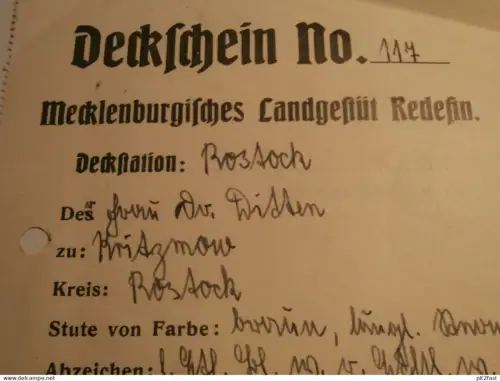 Deckschein No. 117
Mecklenburgisches Landgestüt Redefin.
Deckstation: Rostock
Der Frau Dr. Ditten
zu: Kritzmow
Kreis: Rostock
Stute von Farbe: braun, längl.
Abzeichen: l.